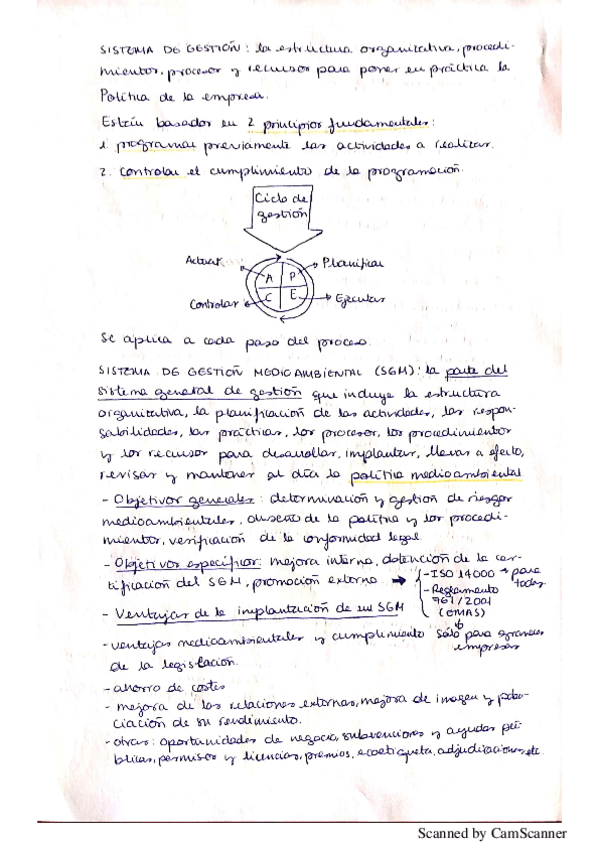 SISTEMA DE GESTIÓN: la estructura organizativa, procedi-
mientos, procesos y recursos para poner en práctica la
Política de la empresa.
Están basados en 2 principios fundamentales:
1. programar previamente las actividades a realizar.
2. Controlar el cumplimiento de la programación.
Ciclo de
gestión
Actuar
Planificar
A P
C E
Controlar
Ejecutar
Se aplica a cada paso del proceso.
SISTEMA DE GESTIÓN MEDIOAMBIENTAL (SGM): la parte del
sistema general de gestión que incluye la estructura
organizativa, la planificación de las actividades, las respon-
sabilidades, las prácticas, los procesos, los procedimientos
y los recursos para desarrollar, implantar, llevar a efecto,
revisar y mantener al día la política medioambiental
- Objetivos generales: determinación y gestión de riesgos
medioambientales, diseño de la política y los procedi-
mientos, verificación de la conformidad legal.
- Objetivos específicos: mejora interna, obtención de la cer-
tificación del SGM, promoción externa
- ISO 14000 → para
todas
- Reglamento
761/2001
(EMAS)
sólo para grandes
empresas
- Ventajas de la implantación de un SGM
- ventajas medioambientales y cumplimiento
de la legislación.
- ahorro de costes
- mejora de las relaciones externas, mejora de imagen y
ciación de su rendimiento.
- otras: oportunidades de negocio, subvenciones y ayudas pú-
blicas, permisos y licencias, premios, ecoetiqueta, adjudicaciones, etc.
Scanned by CamScanner